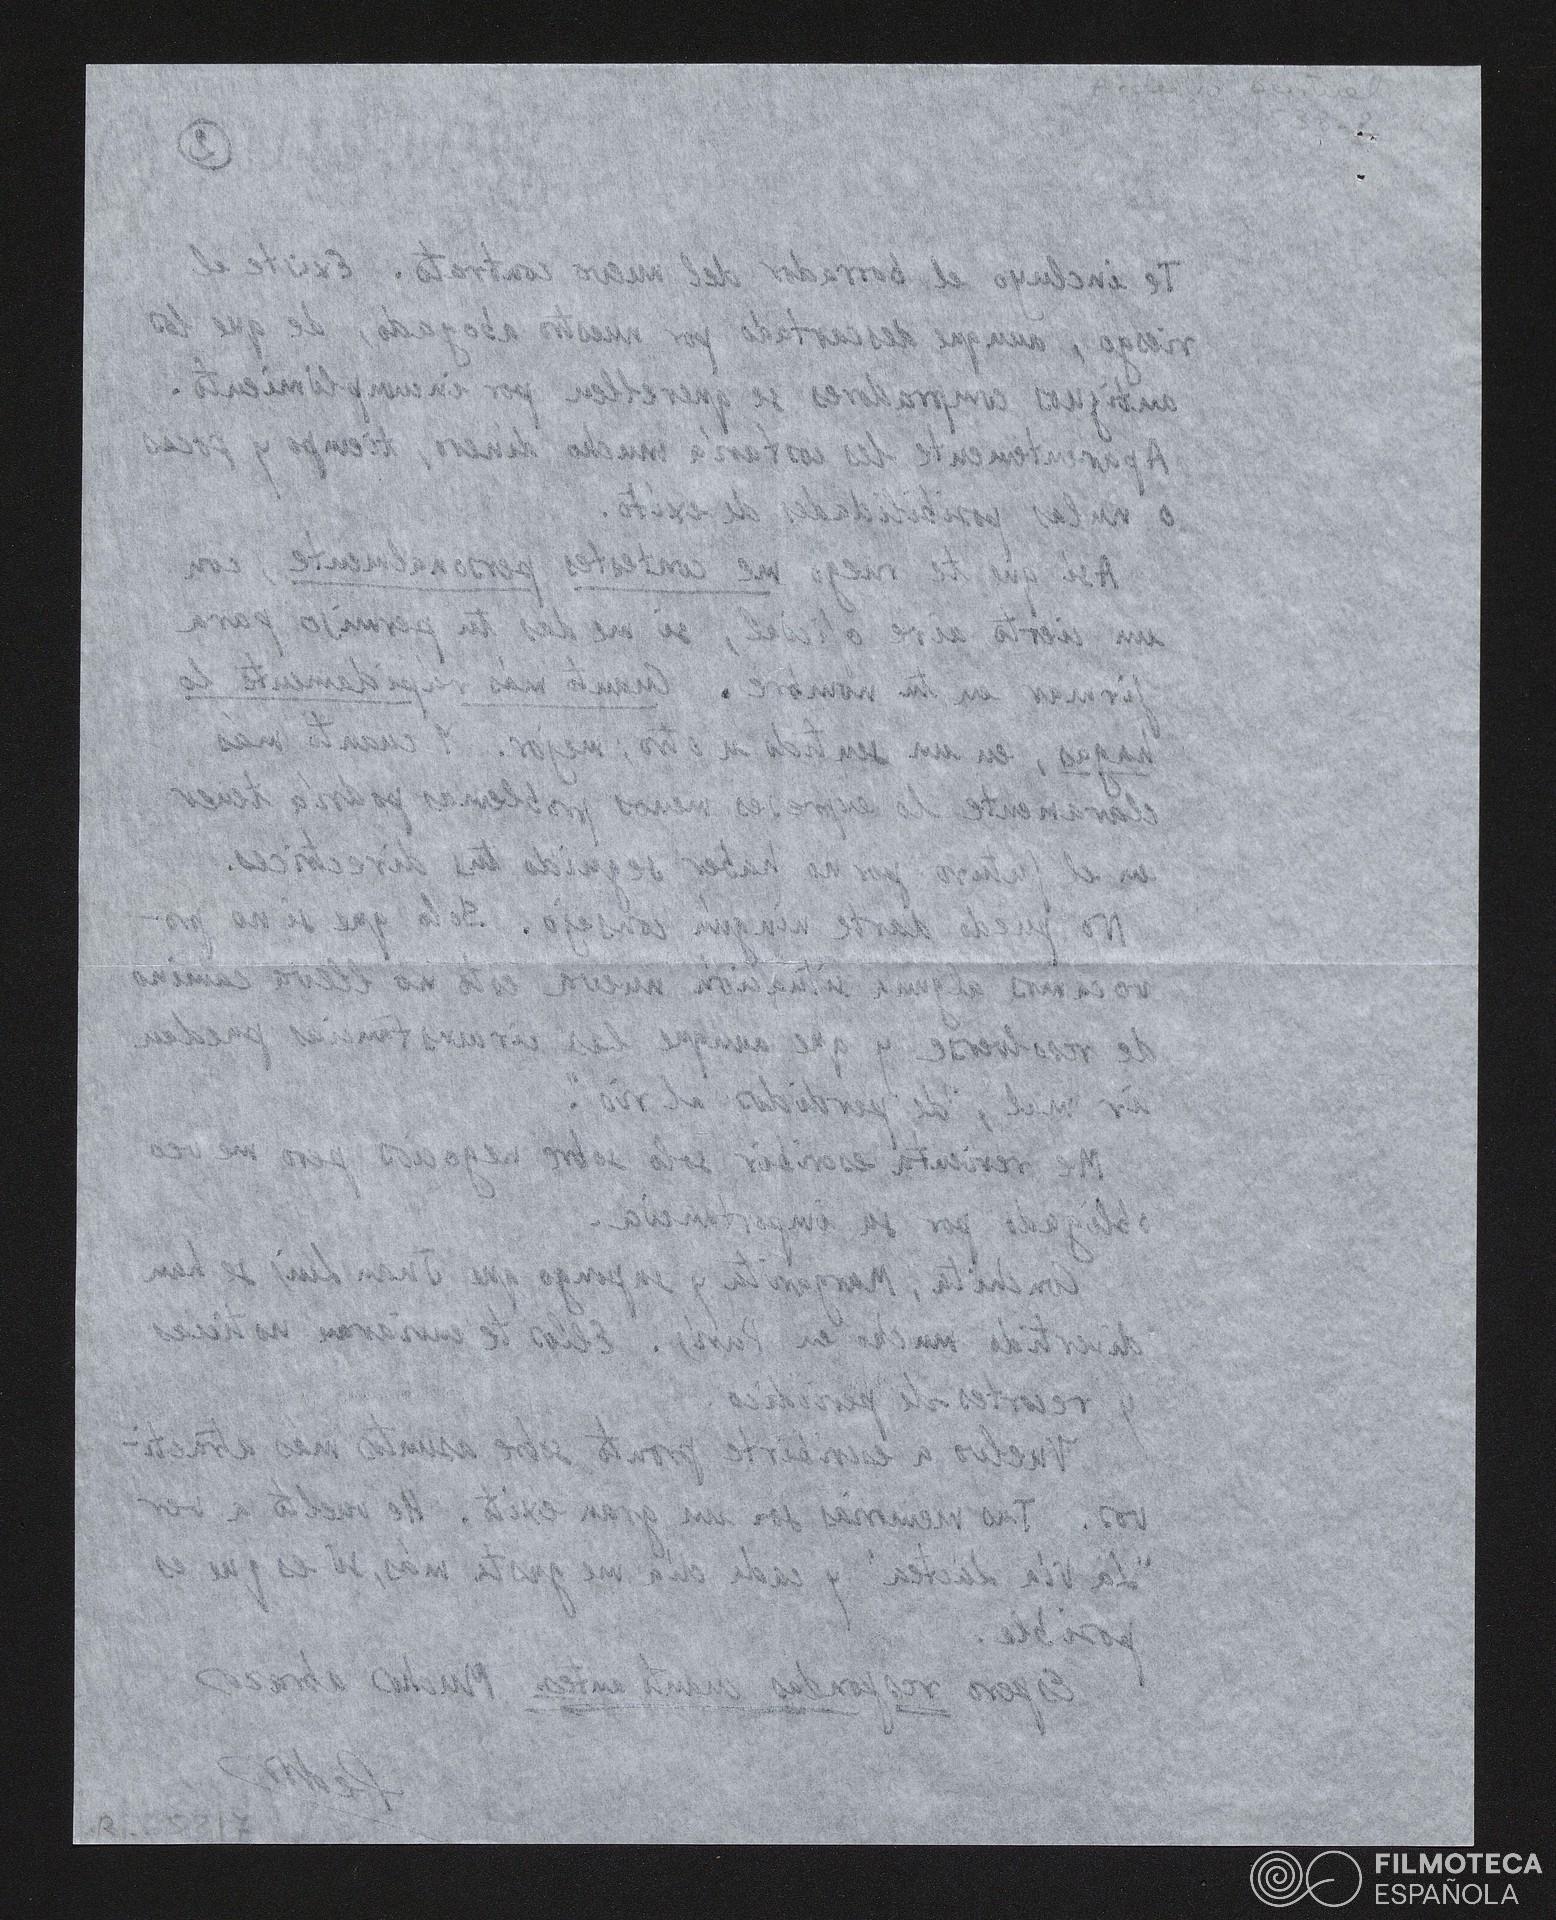 2
Te incluyo el borrador del nuevo contrato. Existe el
riesgo, aunque descartado por nuestro abogado, de que los
antiguos compradores se querellen por incumplimiento.
Aparentemente les costaría mucho dinero, tiempo y pocas
o nulas posibilidades de exito.
Así que te ruego me contestes personalmente, con
un cierto aire oficial, si me das tu permiso para
firmar en tu nombre. Cuanto más rapidamente lo
hagas, en un sentido u otro, mejor. Y cuanto más
claramente lo expreses menos problemas podría tener
en el futuro por no haber seguido tus directrices.
No puedo darte ningún consejo. Solo que si no pro-
vocamos alguna situación nueva esto no lleva camino
de resolverse y que aunque las circunstancias pueden
ir mal, "de perdidos al río".
Me revienta escribir solo sobre negocios pero me veo
obligado por su importancia.
Conchita, Margarita y supongo que Juan Luis se han
divertido mucho en París. Ellos te enviaran noticias
y recortes de periódico.
Vuelvo a escribirte pronto sobre asuntos mas atracti-
vos. Tus memorias son un gran exito. He vuelto a ver
"La Vía Láctea" y cada día me gusta más, si es que es
posible.
Espero respondas cuanto antes. Muchos abrazos
Pedro
FILMOTECA
ESPAÑOLA